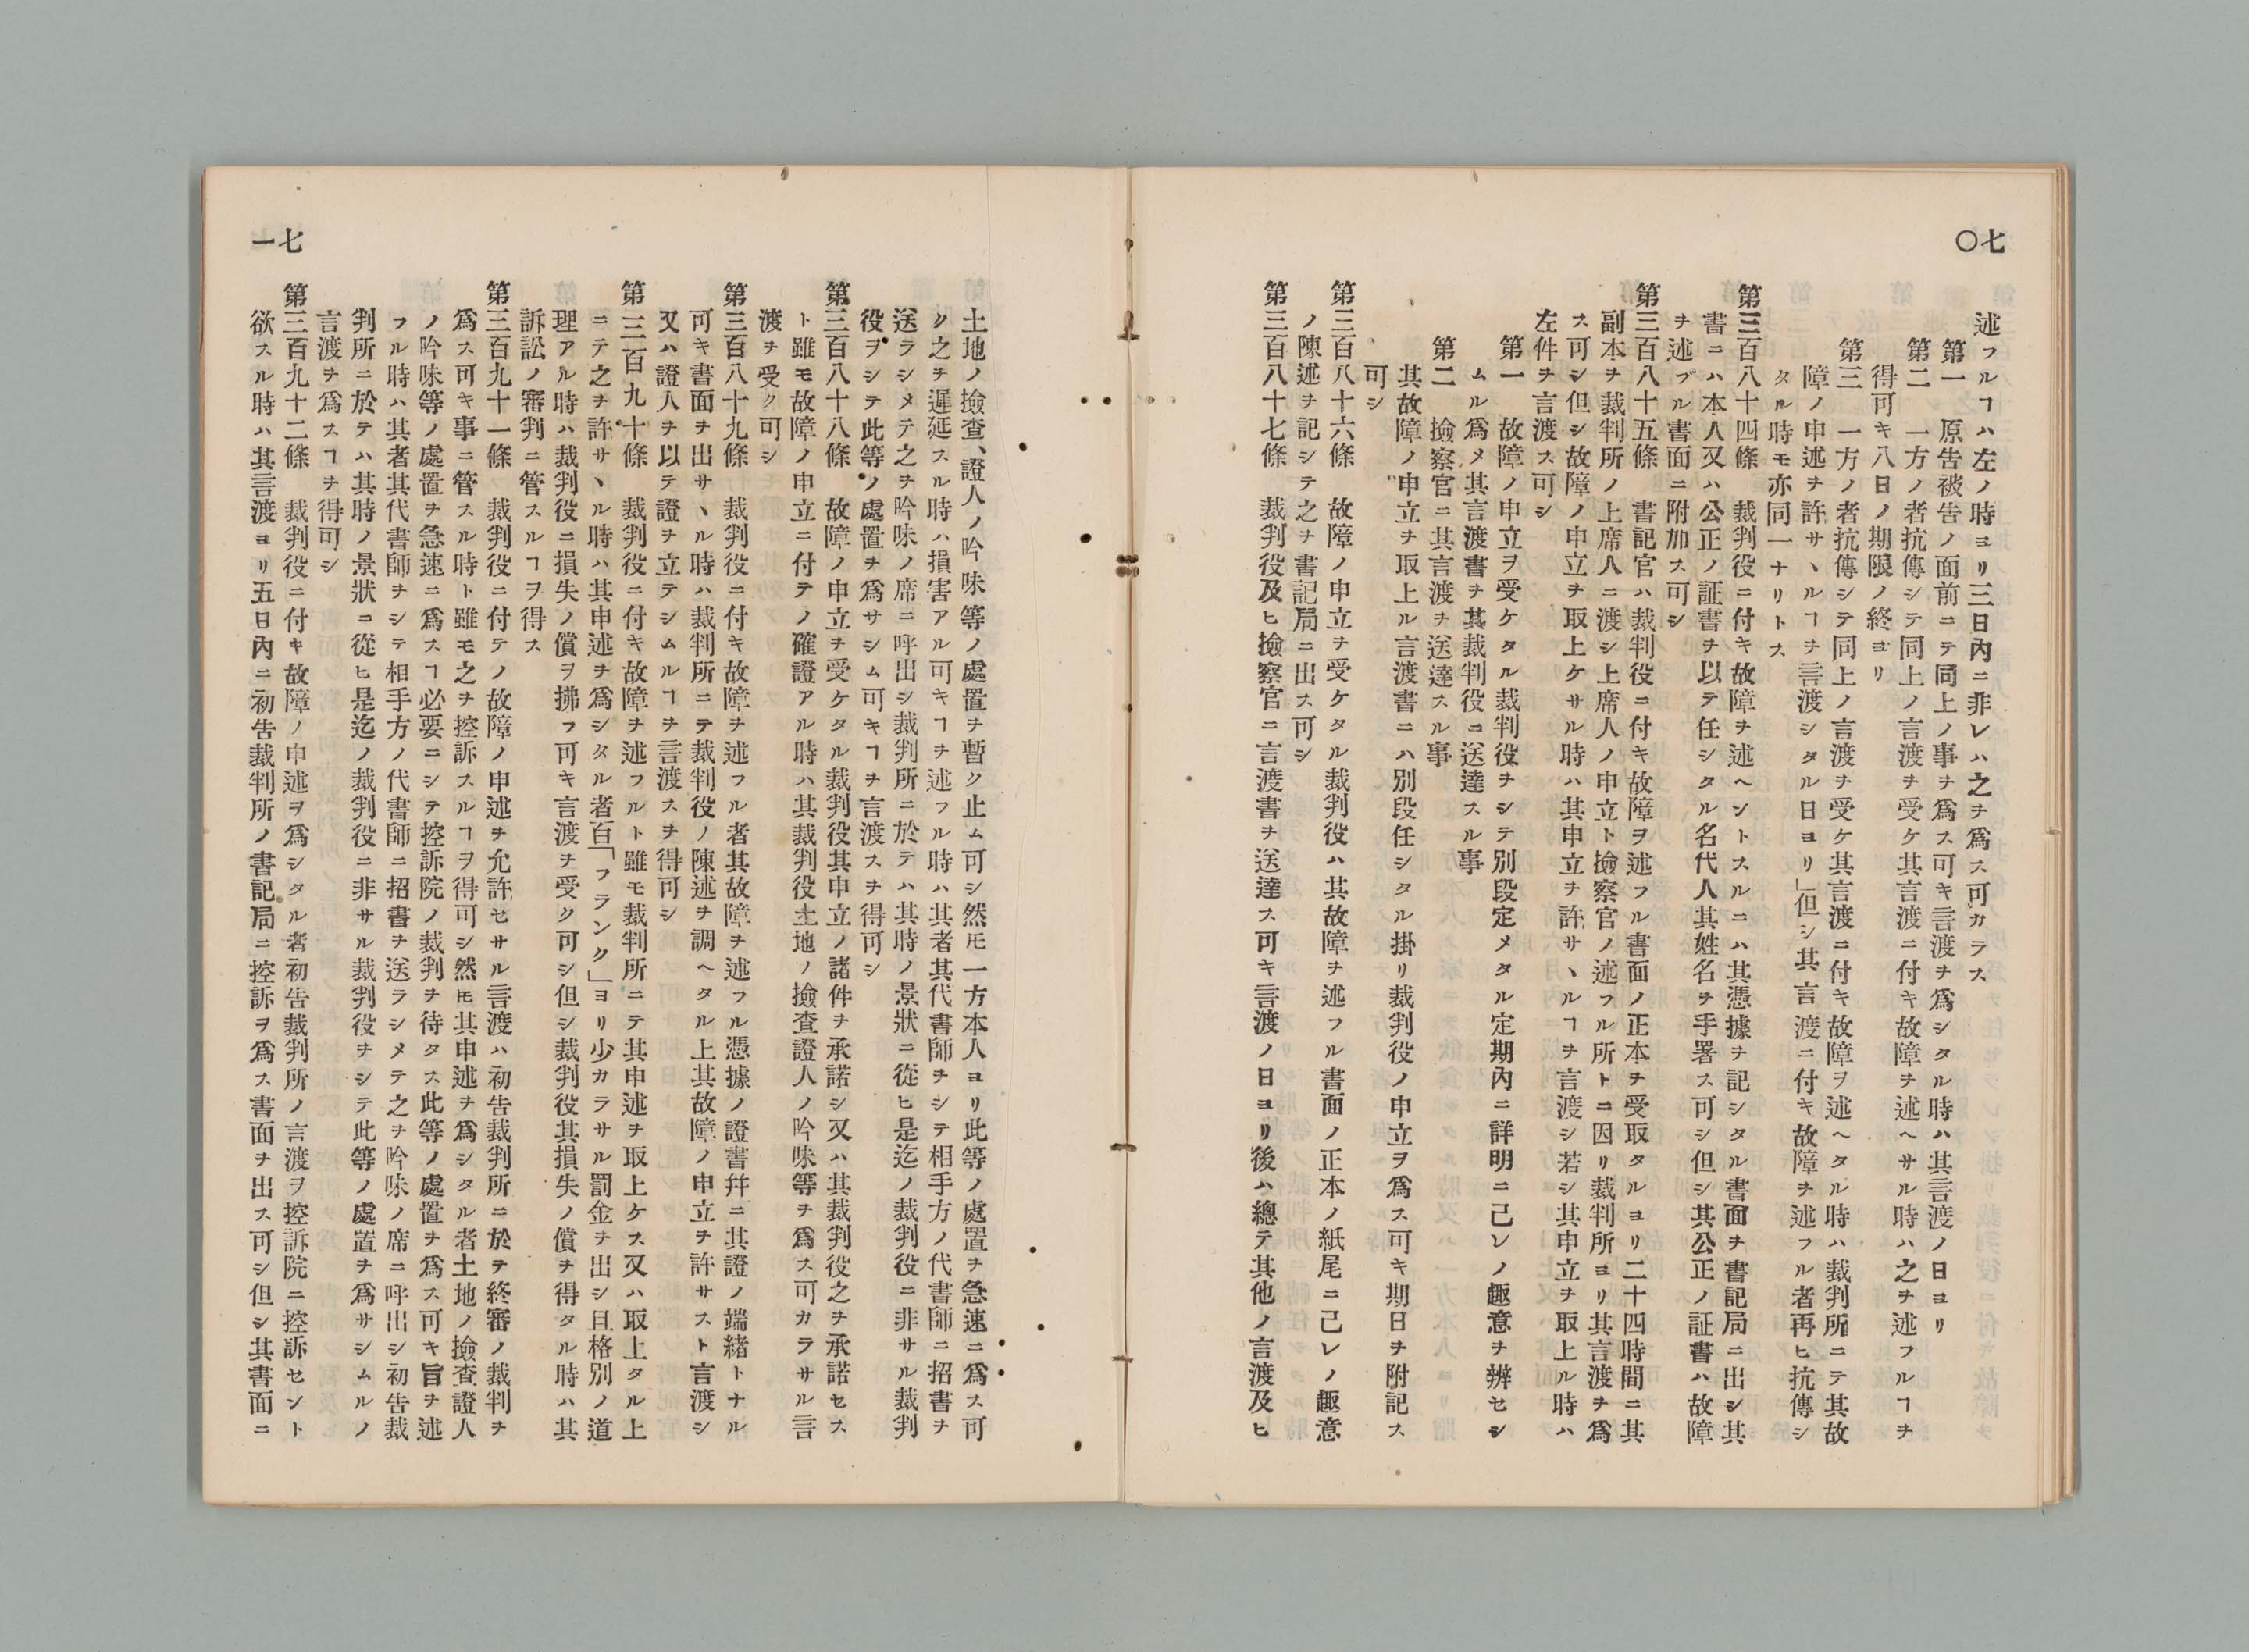 七〇
述フルヿハ左ノ時ヨリ三日內ニ非レハ之ヲ爲ス可カラス
第一　原告被告ノ面前ニテ同上ノ事ヲ爲ス可キ言渡ヲ爲シタル時ハ其言渡ノ日ヨリ
第二　一方ノ者抗傳シテ同上ノ言渡ヲ受ケ其言渡ニ付キ故障ヲ述ヘサル時ハ之ヲ述フルヿヲ
得可キ八日ノ期限ノ終ヨリ
第三　一方ノ者抗傳シテ同上ノ言渡ヲ受ケ其言渡ニ付キ故障ヲ述ヘタル時ハ裁判所ニテ其故
障ノ申述ヲ許サヽルヿヲ言渡シタル日ヨリ」但シ其言渡ニ付キ故障ヲ述フル者再ヒ抗傳シ
タル時モ亦同一ナリトス
第三百八十四條　裁判役ニ付キ故障ヲ述ヘントスルニハ其憑據ヲ記シタル書面ヲ書記局ニ出シ其
書ニハ本人又ハ公正ノ証書ヲ以テ任シタル名代人其姓名ヲ手署ス可シ但シ其公正ノ証書ハ故障
ヲ述ブル書面ニ附加ス可シ
第三百八十五條　書記官ハ裁判役ニ付キ故障ヲ述フル書面ノ正本ヲ受取タルヨリ二十四時間ニ其
副本ヲ裁判所ノ上席人ニ渡シ上席人ノ申立ト撿察官ノ述フル所トニ因リ裁判所ヨリ其言渡ヲ爲
ス可シ但シ故障ノ申立ヲ取上ケサル時ハ其申立ヲ許サヽルヿヲ言渡シ若シ其申立ヲ取上ル時ハ
左件ヲ言渡ス可シ
第一　故障ノ申立ヲ受ケタル裁判役ヲシテ別段定メタル定期內ニ詳明ニ己レノ趣意ヲ辨セシ
ムル爲メ其言渡書ヲ其裁判役ニ送達スル事
第二　撿察官ニ其言渡ヲ送達スル事
其故障ノ申立ヲ取上ル言渡書ニハ別段任シタル掛リ裁判役ノ申立ヲ爲ス可キ期日ヲ附記ス
可シ
第三百八十六條　故障ノ申立ヲ受ケタル裁判役ハ其故障ヲ述フル書面ノ正本ノ紙尾ニ己レノ趣意
ノ陳述ヲ記シテ之ヲ書記局ニ出ス可シ
第三百八十七條　裁判役及ヒ撿察官ニ言渡書ヲ送達ス可キ言渡ノ日ヨリ後ハ總テ其他ノ言渡及ヒ
七一
土地ノ撿査、證人ノ吟味等ノ處置ヲ暫ク止ム可シ然𪜈一方本人ヨリ此等ノ處置ヲ急速ニ爲ス可
ク之ヲ遲延スル時ハ損害アル可キヿヲ述フル時ハ其者其代書師ヲシテ相手方ノ代書師ニ招書ヲ
送ラシメテ之ヲ吟味ノ席ニ呼出シ裁判所ニ於テハ其時ノ景狀ニ從ヒ是迄ノ裁判役ニ非サル裁判
役ヲシテ此等ノ處置ヲ爲サシム可キヿヲ言渡スヲ得可シ
第三百八十八條　故障ノ申立ヲ受ケタル裁判役其申立ノ諸件ヲ承諾シ又ハ其裁判役之ヲ承諾セス
ト雖モ故障ノ申立ニ付テノ確證アル時ハ其裁判役土地ノ撿査證人ノ吟味等ヲ爲ス可カラサル言
渡ヲ受ク可シ
第三百八十九條　裁判役ニ付キ故障ヲ述フル者其故障ヲ述フル憑據ノ證書幷ニ其證ノ端緒トナル
可キ書面ヲ出サヽル時ハ裁判所ニテ裁判役ノ陳述ヲ調ヘタル上其故障ノ申立ヲ許サスト言渡シ
又ハ證人ヲ以テ證ヲ立テシムルヿヲ言渡スヲ得可シ
第三百九十條　裁判役ニ付キ故障ヲ述フルト雖モ裁判所ニテ其申述ヲ取上ケス又ハ取上タル上
ニテ之ヲ許サヽル時ハ其申述ヲ爲シタル者百「フランク」ヨリ少カラサル罰金ヲ出シ且格別ノ道
理アル時ハ裁判役ニ損失ノ償ヲ拂フ可キ言渡ヲ受ク可シ但シ裁判役其損失ノ償ヲ得タル時ハ其
訴訟ノ審判ニ管スルヿヲ得ス
第三百九十一條　裁判役ニ付テノ故障ノ申述ヲ允許セサル言渡ハ初告裁判所ニ於テ終審ノ裁判ヲ
爲ス可キ事ニ管スル時ト雖モ之ヲ控訴スルヿヲ得可シ然𪜈其申述ヲ爲シタル者土地ノ撿査證人
ノ吟味等ノ處置ヲ急速ニ爲スヿ必要ニシテ控訴院ノ裁判ヲ待タス此等ノ處置ヲ爲ス可キ旨ヲ述
フル時ハ其者其代書師ヲシテ相手方ノ代書師ニ招書ヲ送ラシメテ之ヲ吟味ノ席ニ呼出シ初告裁
判所ニ於テハ其時ノ景狀ニ從ヒ是迄ノ裁判役ニ非サル裁判役ヲシテ此等ノ處置ヲ爲サシムルノ
言渡ヲ爲スヿヲ得可シ
第三百九十二條　裁判役ニ付キ故障ノ申述ヲ爲シタル者初告裁判所ノ言渡ヲ控訴院ニ控訴セント
欲スル時ハ其言渡ヨリ五日內ニ初告裁判所ノ書記局ニ控訴ヲ爲ス書面ヲ出ス可シ但シ其書面ニ